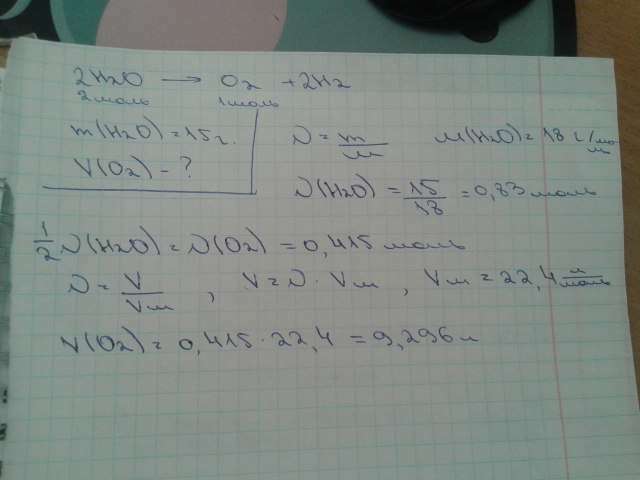 2H2O → O2 + 2H2
2 моль 1 моль
m(H2O) = 15 г.
V(O2) - ?
ν = m/M M(H2O) = 18 г/моль
ν(H2O) = 15/18 = 0,83 моль
1/2 ν(H2O) = ν(O2) = 0,415 моль
ν = V/Vм , V = ν · Vм , Vм = 22,4 л/моль
V(O2) = 0,415 · 22,4 = 9,296 л